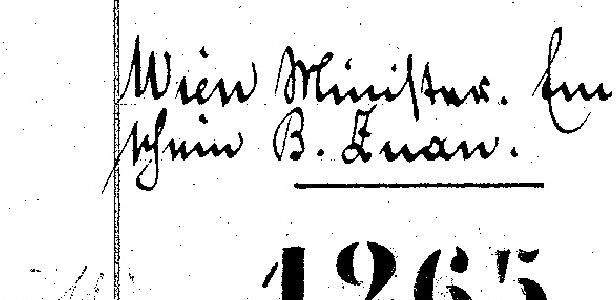 Wien Minister. Em
schein B. Znan.
1265